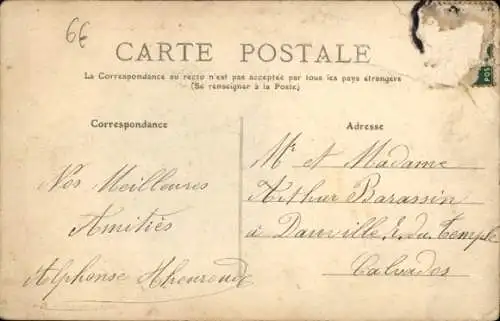 6€
CARTE POSTALE
La Correspondance au recto n'est pas acceptée par tous les pays étrangers
(Se renseigner à la Poste)
Correspondance
Nos Meilleures
Amitiés
Alphonse
Adresse
Mr et Madame
Arthur Barassin
à Danville du Temple
Calvados
POS